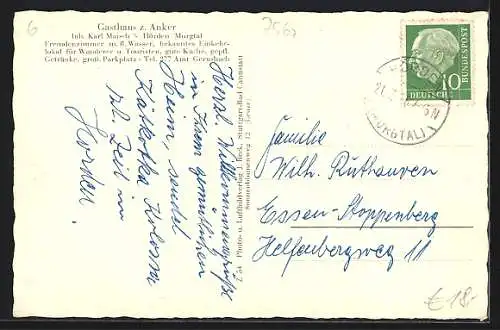 6
7567
Gasthaus z. Anker
Inh. Karl Maisch · Hörden Murgtal
Fremdenzimmer m. fl. Wasser, bekanntes Einkehr-
lokal für Wanderer u. Touristen, gute Küche, gepfl.
Getränke, groß. Parkplatz · Tel. 277 Amt Gernsbach
Herzl. Willkommensgrüße
in Ihrem gemütlichen
Heim, sendet
Kolossa
zt. Zeit in
Hörden.
Z 54 Photo- u. Luftbildverlag J. Beck, Stuttgart-Bad Cannstatt
DEUTSCHE
BUNDESPOST
10
(MURGTAL)
Familie
Wilh. Ruthauven
Essen-Stoppenberg
Helfenbergweg 11
€ 18,-